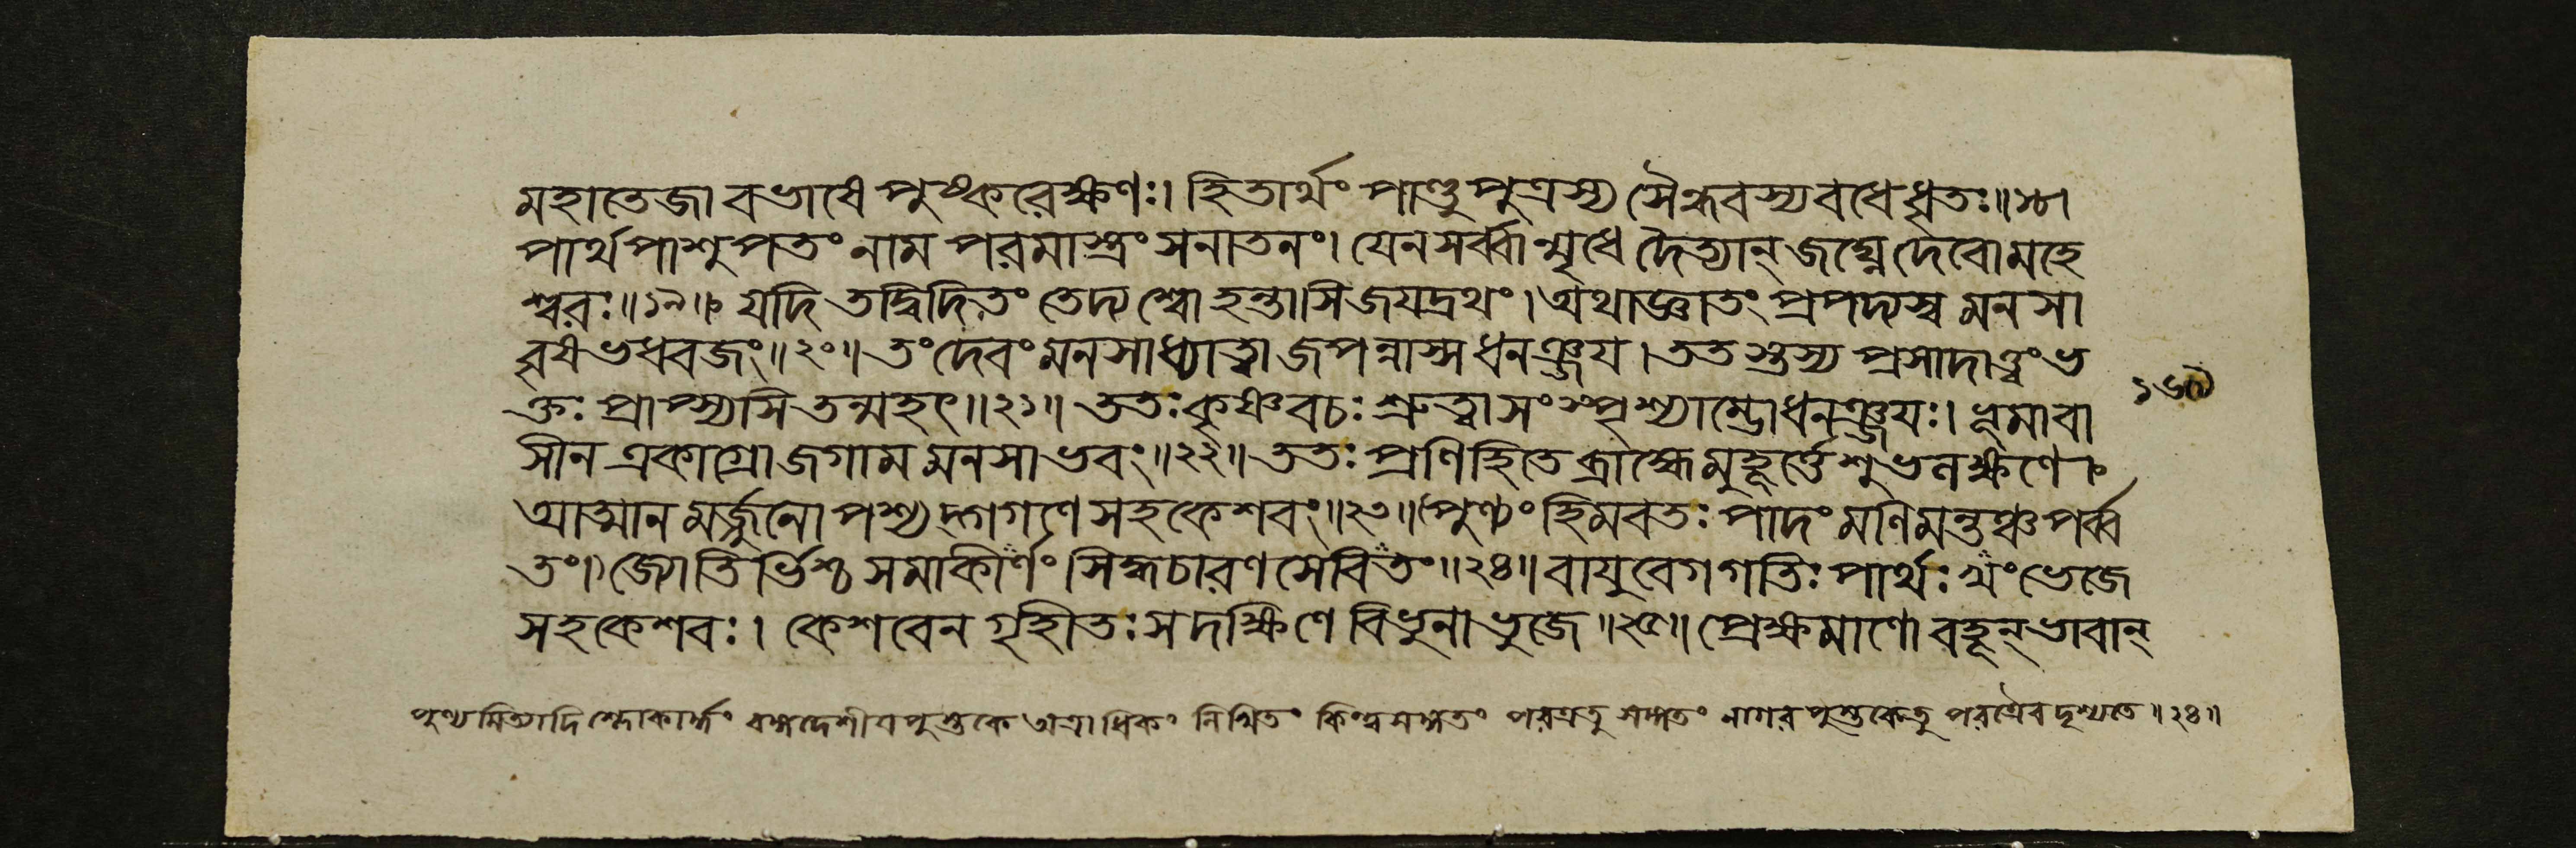 মহাতেজা বভাষে পুষ্করেক্ষণঃ। হিতার্থং পাণ্ডুপুত্রস্য সৈন্ধবস্য বধে ধৃতঃ॥১৮।
পার্থ পাশুপতং নাম পরমাস্ত্রং সনাতনং। যেন সর্ব্বান্মৃধে দৈত্যান্ জঘ্নে দেবো মহে
শ্বরঃ॥১৯॥ যদি তদ্বিদিতং তেদ্য শ্বো হন্তাসি জয়দ্রথং। অথাজ্ঞাতং প্রপদ্যস্ব মনসা
বৃষভধ্বজং॥২০॥ তং দেবং মনসা ধ্যাত্বা জপন্নাস্স ধনঞ্জয়। ততস্তস্য প্রসাদাত্ত্বং ভ
ক্তঃ প্রাপ্স্যসি তন্মহৎ॥২১॥ ততঃ কৃষ্ণবচঃ শ্রুত্বা সংস্পৃশ্যাম্ভো ধনঞ্জয়ঃ। ভূমাবা
সীন একাগ্রো জগাম মনসা ভবং॥২২॥ ততঃ প্রণিহিতে ব্রাহ্মে মুহূর্ত্তে শুভলক্ষণে।
আত্মানমর্জ্জুনোপশ্যদ্গগণে সহকেশবং॥২৩॥ (পুণ্যং হিমবতঃ পাদং মণিমন্তঞ্চ পর্ব্ব
তং।) জ্যোতির্ভিশ্চ সমাকীর্ণং সিদ্ধচারণসেবিতং॥২৪॥ বায়ুবেগগতিঃ পার্থঃ খং ভেজে
সহকেশবঃ। কেশবেন গৃহীতঃ স দক্ষিণে বিভুনা ভুজে॥২৫॥ প্রেক্ষমাণো বহূন্ ভাবান্
১৬৩
পুণ্যমিত্যাদি শ্লোকার্দ্ধং বঙ্গদেশীয়পুস্তকে অত্রাধিকং লিখিতং কিন্ত্বসঙ্গতং পরত্রতু সঙ্গতং নাগরপুস্তকেতু পরত্রৈব দৃশ্যতে॥২৪॥